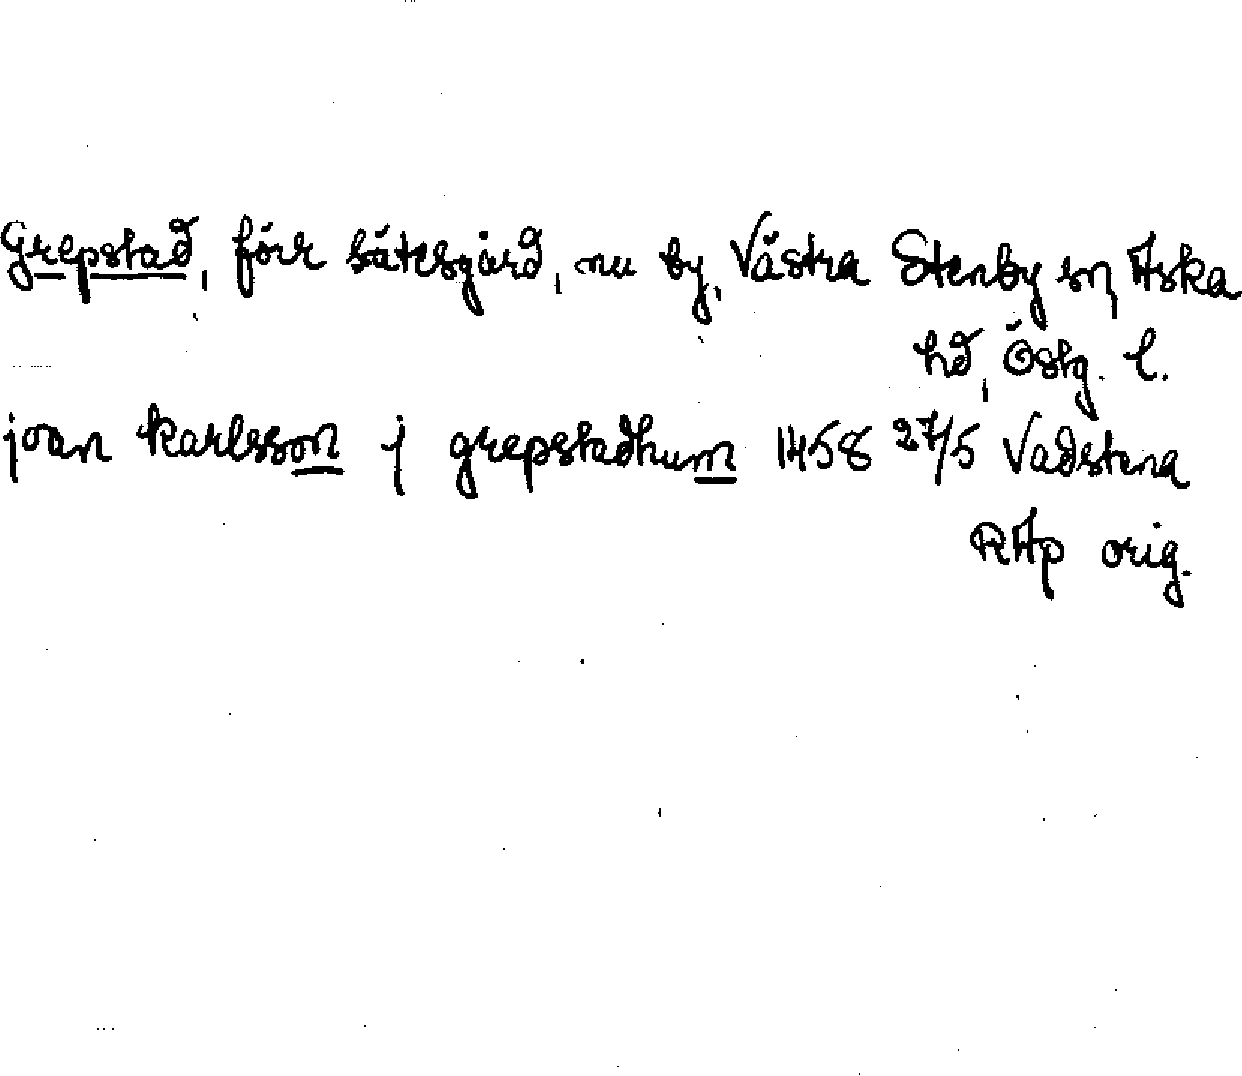 Grepstad, förr sätesgård, nu by, Västra Stenby sn, Aska
hd, Östg. l.
joan karlsson j grepstadhum 1458 27/5 Vadstena
RAp orig.